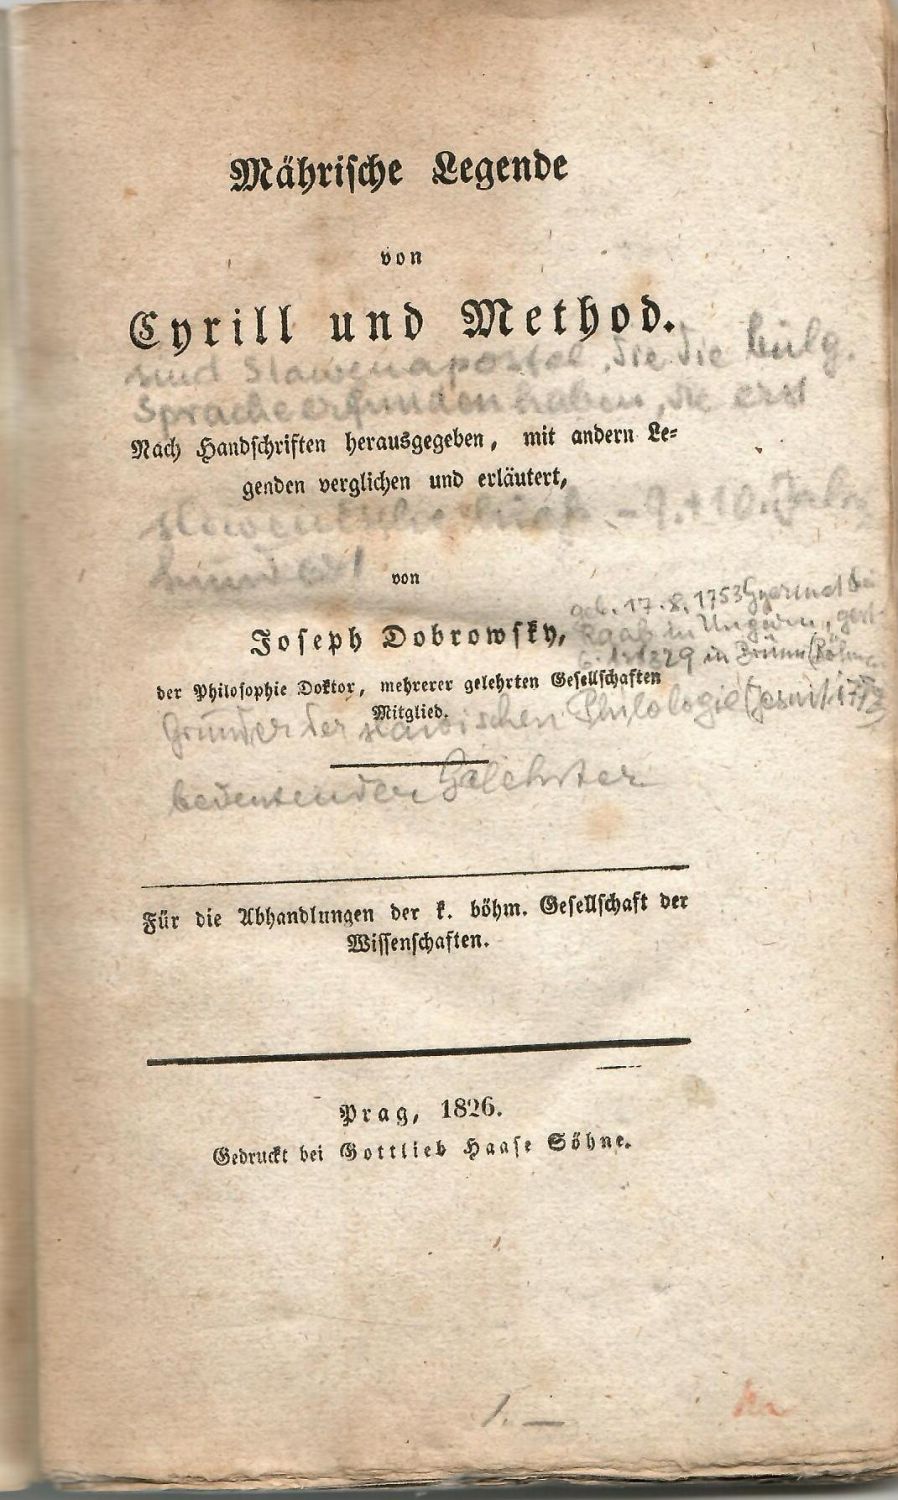 Mährische Legende
von
Cyrill und Method.
sind Slawenapostel, die die bulg.
Sprache erfunden haben, die erst
Nach Handschriften herausgegeben, mit andern Le⸗
genden verglichen und erläutert,
slawische - 9. + 10. Jahr
hundert
von
geb. 17. 8. 1753 Gyermet bei
Joseph Dobrowsky,
Raab in Ungarn, gest.
6. 1. 1829 in Brünn (Böhmen
der Philosophie Doktor, mehrerer gelehrten Gesellschaften
Mitglied.
Gründer der slawischen Philologie (Jesuit 1772)
bedeutender Gelehrter
Für die Abhandlungen der k. böhm. Gesellschaft der
Wissenschaften.
Prag, 1826.
Gedruckt bei Gottlieb Haase Söhne.
1.—